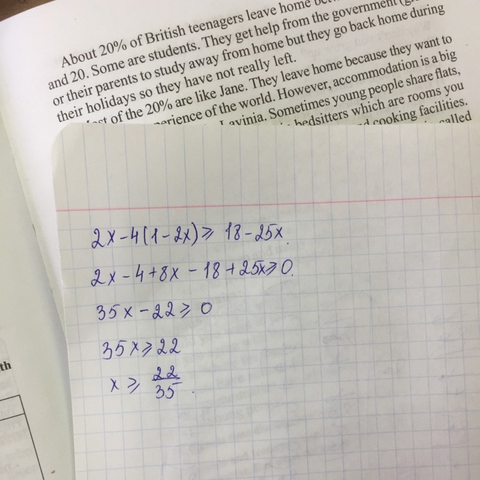 About 20% of British teenagers leave home
and 20. Some are students. They get help from the government
or their parents to study away from home but they go back home during
their holidays so they have not really left.
of the 20% are like Jane. They leave home because they want to
of the world. However, accommodation is a big
Lavinia. Sometimes young people share flats,
bedsitters which are rooms you
cooking facilities.
called
2x-4(1-2x)⩾ 18-25x.
2x-4+8x-18+25x⩾0.
35x-22⩾0
35x⩾22
x⩾ 22/35.
th